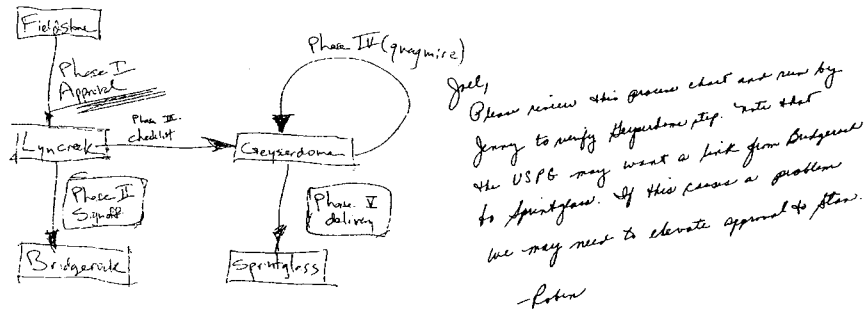 Fieldstone
Phase I
Approval
Lyncreek
Phase III
checklist
Phase IV (quagmire)
Geyserdome
Phase II
Signoff
Phase V
delivery
Bridgerock
Sprintglass
Joel,
Please review this process chart and run by
Jenny to verify Geyserdome step. Note that
the USPG may want a link from Bridgerock
to Sprintglass. If this causes a problem
we may need to elevate approval to Stan.
-Robin